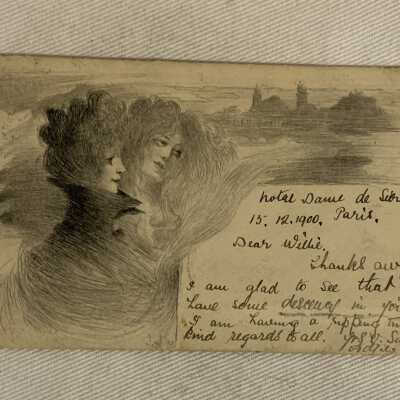 Notre Dame de Sion
15.12.1900. Paris.
Dear Willie.
Thanks aw
I am glad to see that
have some descency in you
I am having a ripping
kind regards to all.